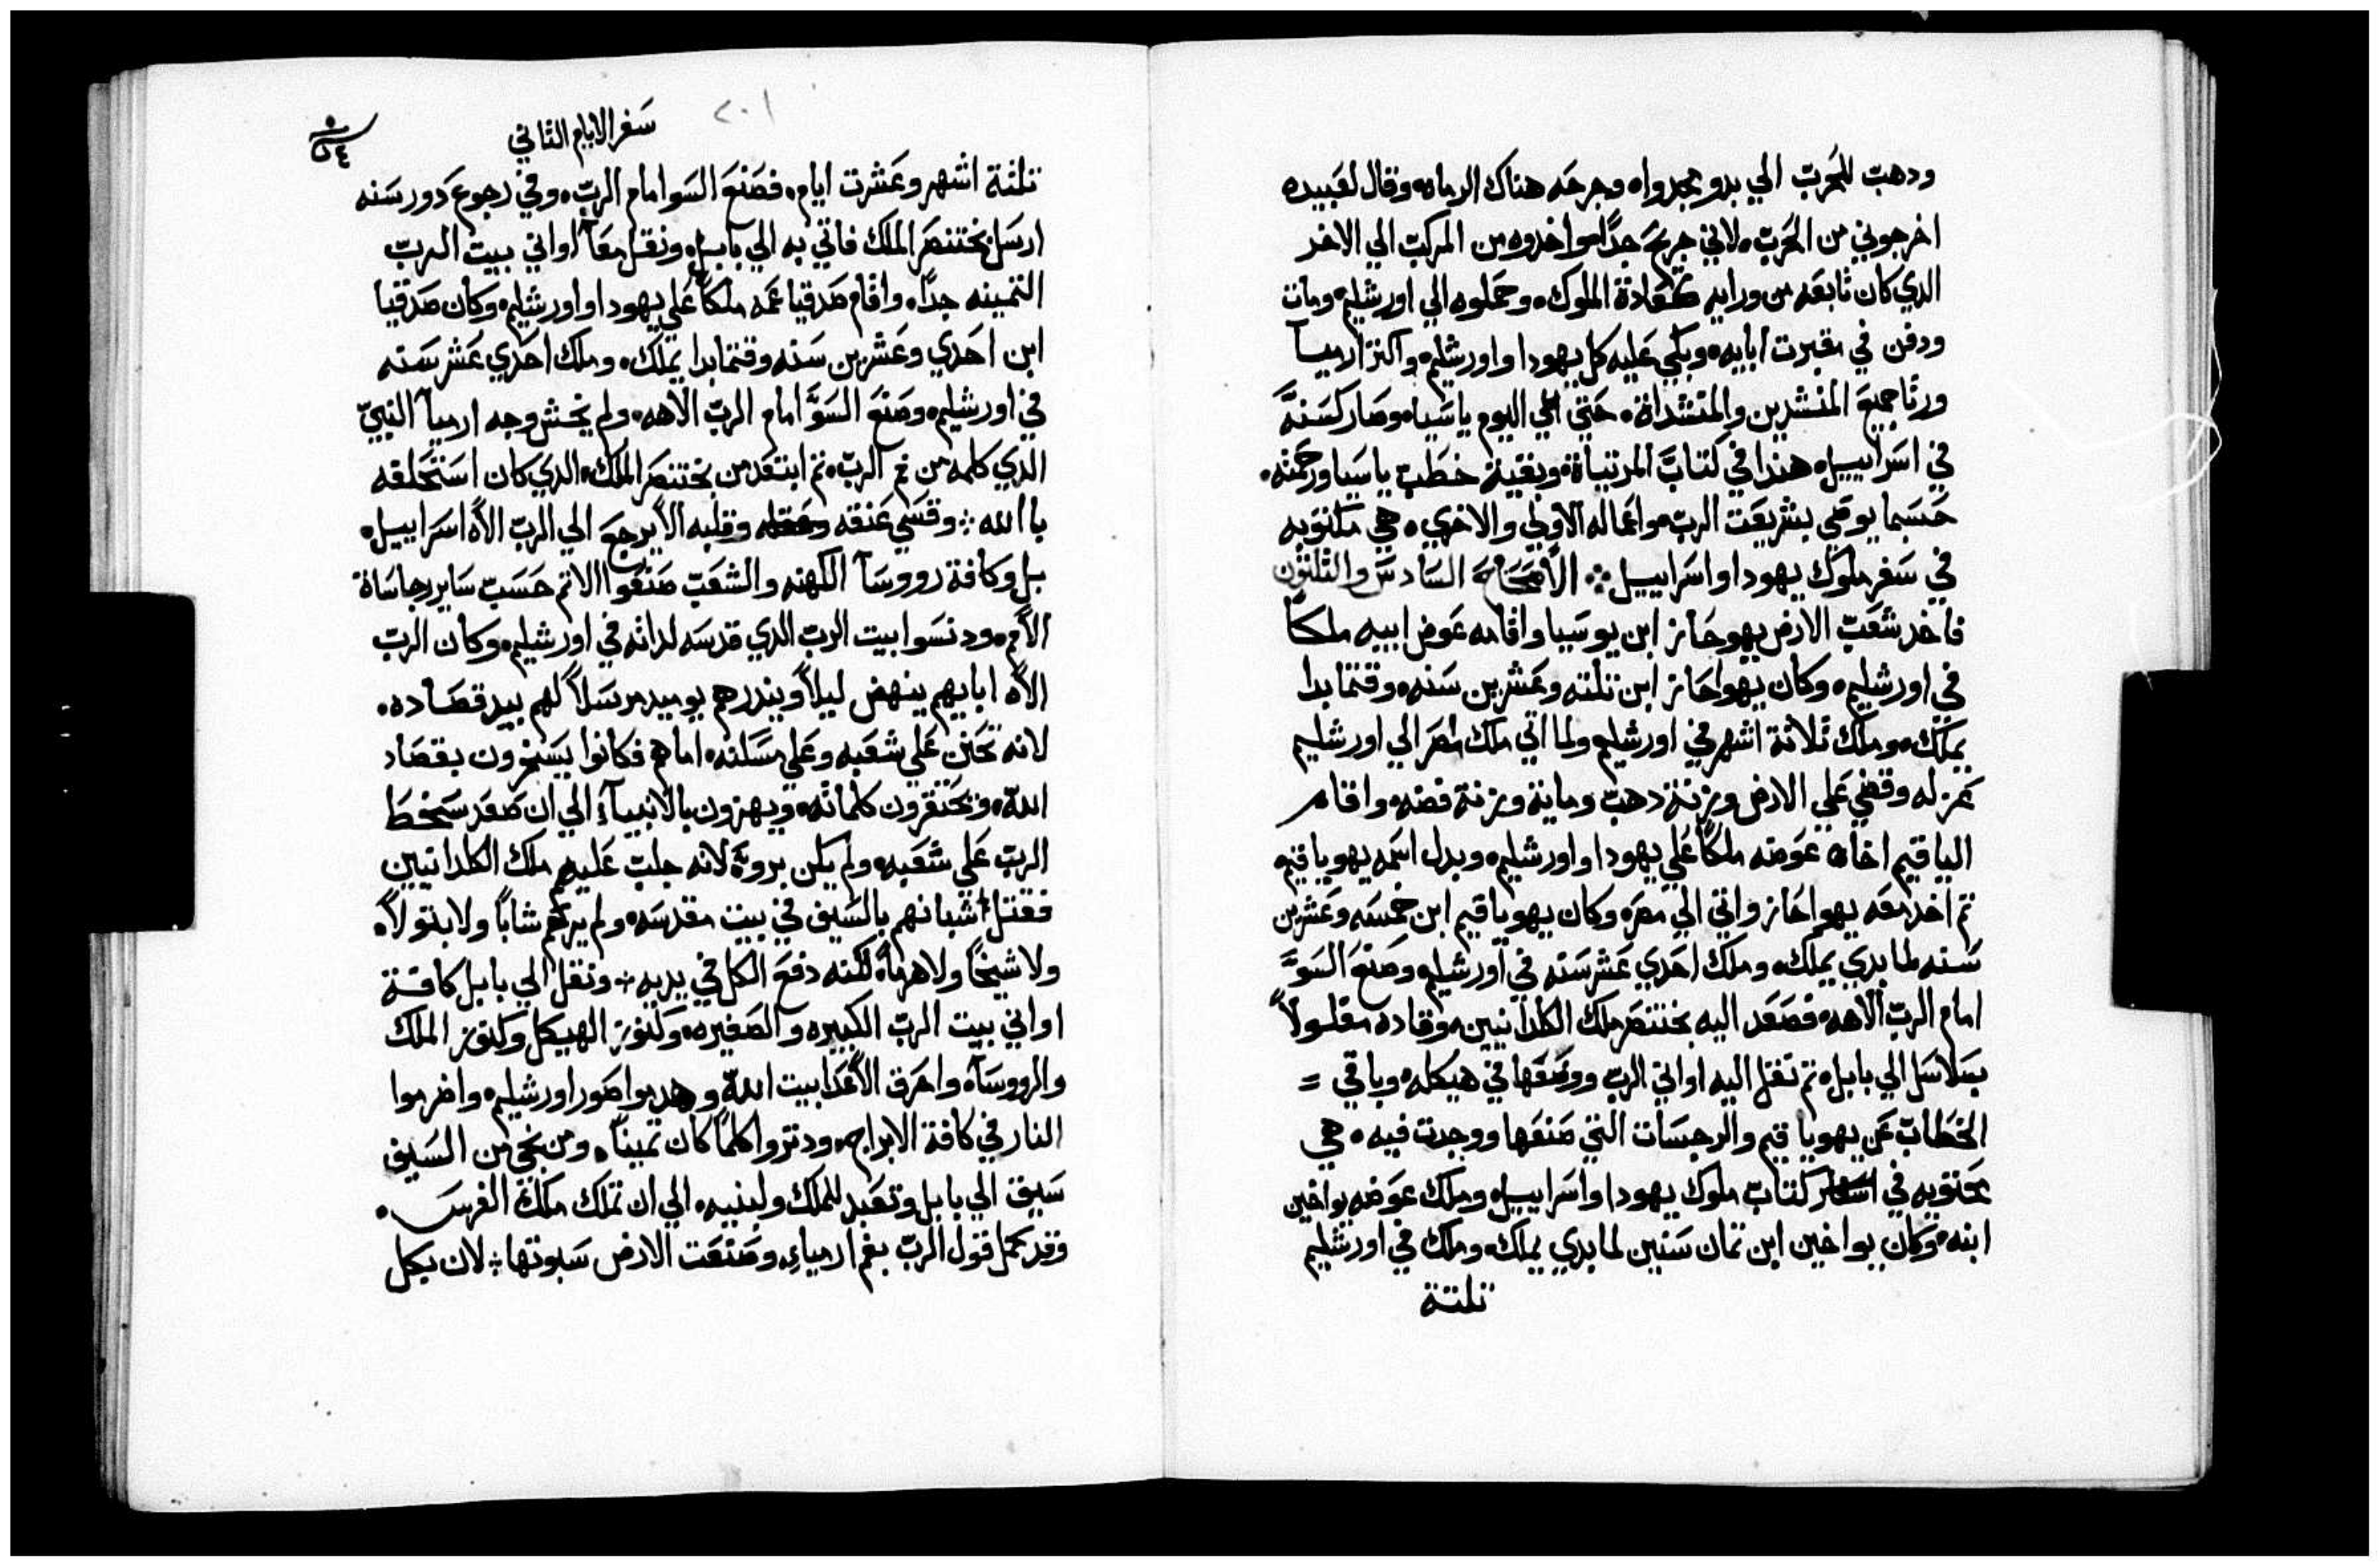 ودهب للحرب الي بدو مجدواه وجرحه هناك الرماه وقال لعبيده
اخرجوني من الحرب لاني جريح جدًا واخدوه من المركب الي الاخر
الدي كان تابعه من ورايه كعادة الملوك وحملوه الي اورشليم ومات
ودفن في مقبرت ابايه وبكي عليه كل يهودا واورشليم واكتر ارميا
ورتا جميع المنشدين والمنشداة حتي الي اليوم ياسيا وصار كسنة
في اسراييل هندا في كتاب المرتياة وبقية خطب ياسيا ورحمته
حسبما يوصي بشريعت الرب واعماله الاولي والاخري هي مكتوبه
في سفر ملوك يهودا واسراييل الاصحاح السادس والتلتون
فاخد شعب الارض يهوحاز ابن يوسيا واقامه عوض ابيه ملكًا
في اورشليم وكان يهواحاز ابن تلته وعشرين سنه وقتما بدا
يملك وملك تلاتة اشهر في اورشليم ولما اتي ملك مصر الي اورشليم
عزله وقضي علي الارض وزنة دهب وماية وزنة فضه واقام
الياقيم اخاه عوضه ملكًا علي يهودا واورشليم وبدل اسمه يهوياقيم
تم اخد معه يهواحاز واتي الي مصر وكان يهوياقيم ابن خمسه وعشرين
سنه لما بدي يملك وملك احدي عشر سنه في اورشليم وصنع السوَّ
امام الرب الاهه فصعد اليه بختنصر ملك الكلدانيين وقاده مغلولاً
بسلاسل الي بابل تم نقل اليه اواني الرب ووضعها في هيكله وباقي =
الخطاب عن يهوياقيم والرجسات التي صنعها ووجدت فيه هي
محتويه في كتاب ملوك يهودا واسراييل وملك عوضه يواخين
ابنه وكان يواخين ابن تمان سنين لما بدي يملك وملك في اورشليم
تلتة
٢٠١
سفر الايام التاني
تلتة اشهر وعشرت ايام فصنع السو امام الرب وفي رجوع دور سنه
ارسل بختنصر الملك فاتي به الي بابل ونقل معًا اواني بيت الرب
التمينه جدًا واقام صدقيا عمه ملكًا علي يهودا واورشليم وكان صدقيا
ابن احدي وعشرين سنه وقتما بدا يملك وملك احدي عشر سنه
في اورشليم وصنع السوَّ امام الرب الاهه ولم يخش وجه ارميا النبي
الدي كلمه من فم الرب تم ابتعد من بختنصر الملك الدي كان استحلفه
بالله وقسي عنقه وقلبه الا يرجع الي الرب الاه اسراييل
بل وكافة رووسا الكهنه والشعب صنعوا الاتم حسب ساير رجاساة
الامم ودنسوا بيت الرب الدي قدسه لداته في اورشليم وكان الرب
الاه ابايهم ينهض ليلاً ويندرهم يوميد مرسلاً لهم بيد قصاده
لانه تحنن علي شعبه وعلي مسكنه اما هم فكانوا يسخرون بقصاد
الله ويحتقرون كلماته ويهزون بالانبيآ الي ان صعد سخط
الرب علي شعبه ولم يكن بروة لانه جلب عليهم ملك الكلدانيين
فقتل شبانهم بالسيف في بيت مقدسه ولم يرحم شابًا ولا بتولاً
ولا شيخًا ولا هرمًا لكنه دفع الكل في يديه ونقل الي بابل كافة
اواني بيت الرب الكبيره والصغيره وكنوز الهيكل وكنوز الملك
والرووسآ واحرق الاعدا بيت الله وهدموا صور اورشليم واضرموا
النار في كافة الابراج ودتروا كلما كان تمينًا ومن نجي من السيف
سيق الي بابل وتعبد للملك ولبنيه الي ان تملك ملك الفرس
وقد كمل قول الرب بفم ارمياء وصنعت الارض سبوتها لان بكل